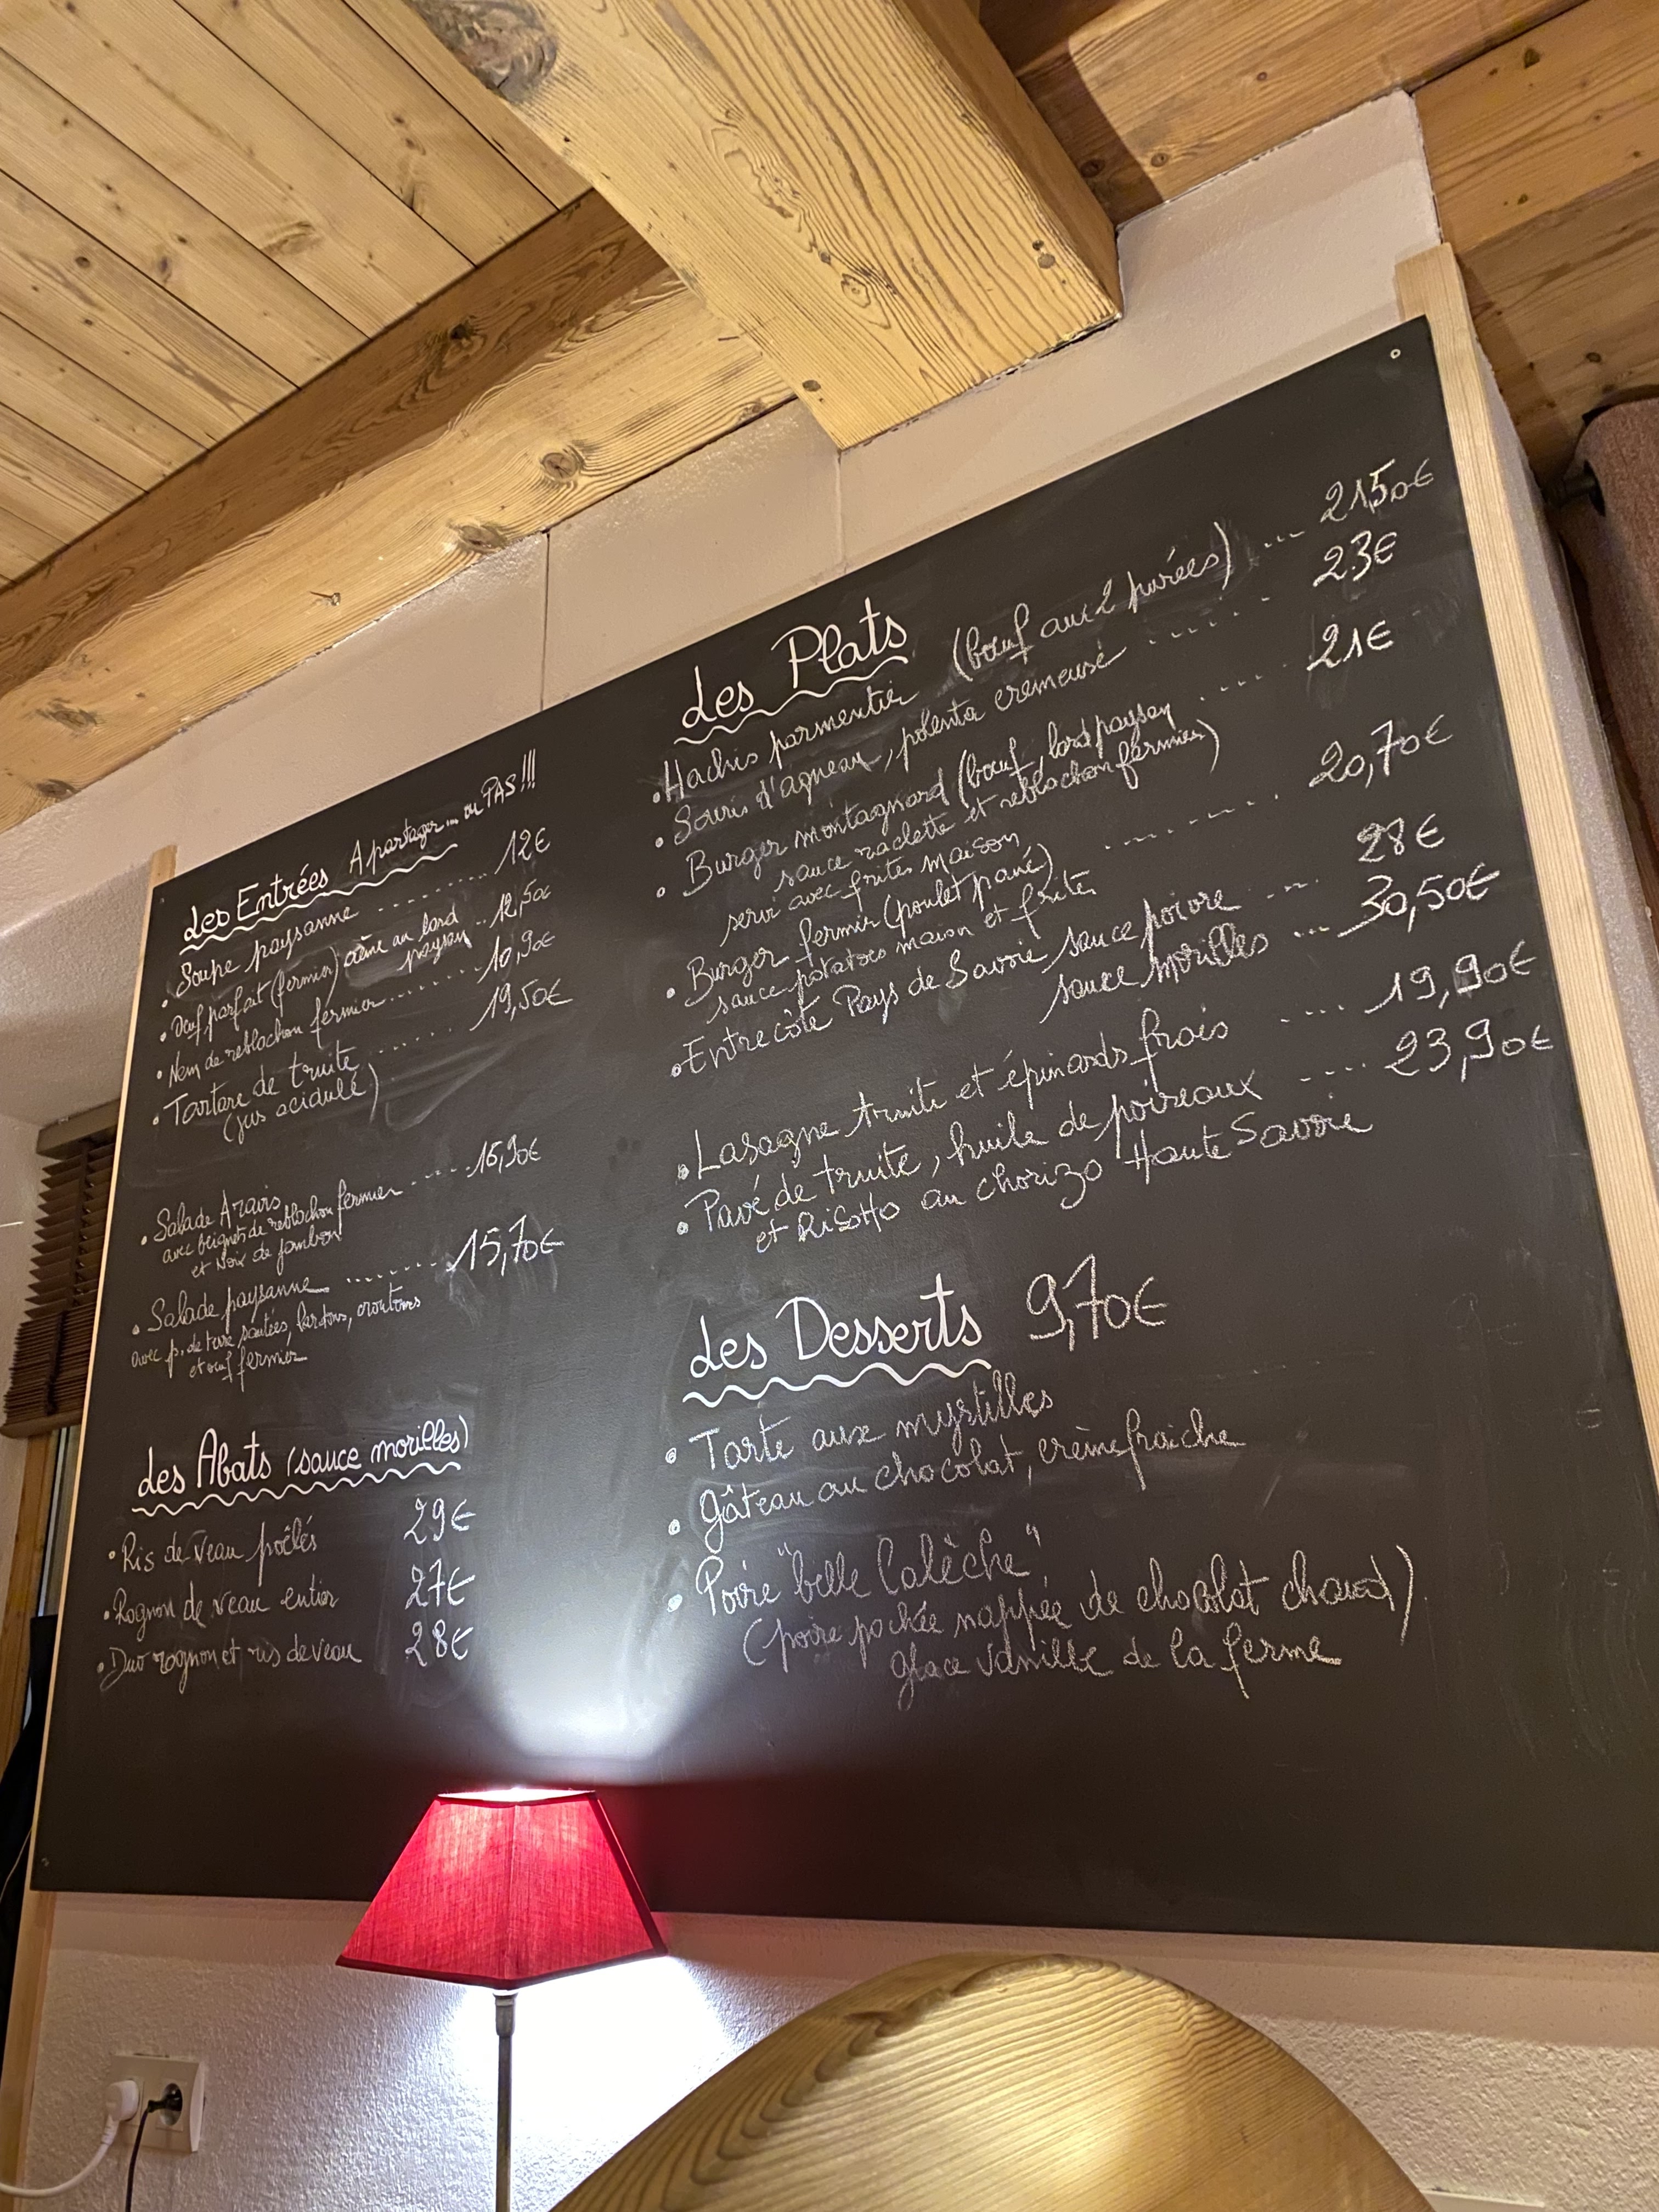 Les Entrées A partager... ou PAS!!!
• Soupe paysanne ........... 12€
• Oeuf parfait (fermier) crème au lard paysan .. 12,50€
• Nem de reblochon fermier ....... 10,90€
• Tartare de truite ....... 19,50€
(jus acidulé)
• Salade Aravis ..... 16,90€
avec beignets de reblochon fermier
et Noix de jambon
• Salade paysanne ......... 15,70€
avec p. de terre sautées, lardons, croutons
et oeuf fermier
Les Abats (sauce morilles)
• Ris de veau poêlés 29€
• Rognon de veau entier 27€
• Duo rognon et ris de veau 28€
Les Plats
• Hachis parmentier (boeuf aux 2 purées) ... 21,50€
• Souris d'agneau, polenta cremeuse ...... 23€
• Burger montagnard (boeuf, lard paysan ..... 21€
sauce raclette et reblochon fermier)
servi avec frites maison
• Burger fermier (poulet pané) .......... 20,70€
sauce potatoes maison et frites
• Entrecôte Pays de Savoie sauce poivre ..... 28€
sauce morilles ... 30,50€
• Lasagne truite et épinards frais ..... 19,90€
• Pavé de truite, huile de poireaux ..... 23,90€
et Risotto au chorizo Haute Savoie
Les Desserts 9,70€
• Tarte aux myrtilles
• Gâteau au chocolat, crème fraiche
• Poire "belle Calèche"
(poire pochée nappée de chocolat chaud)
glace vanille de la ferme